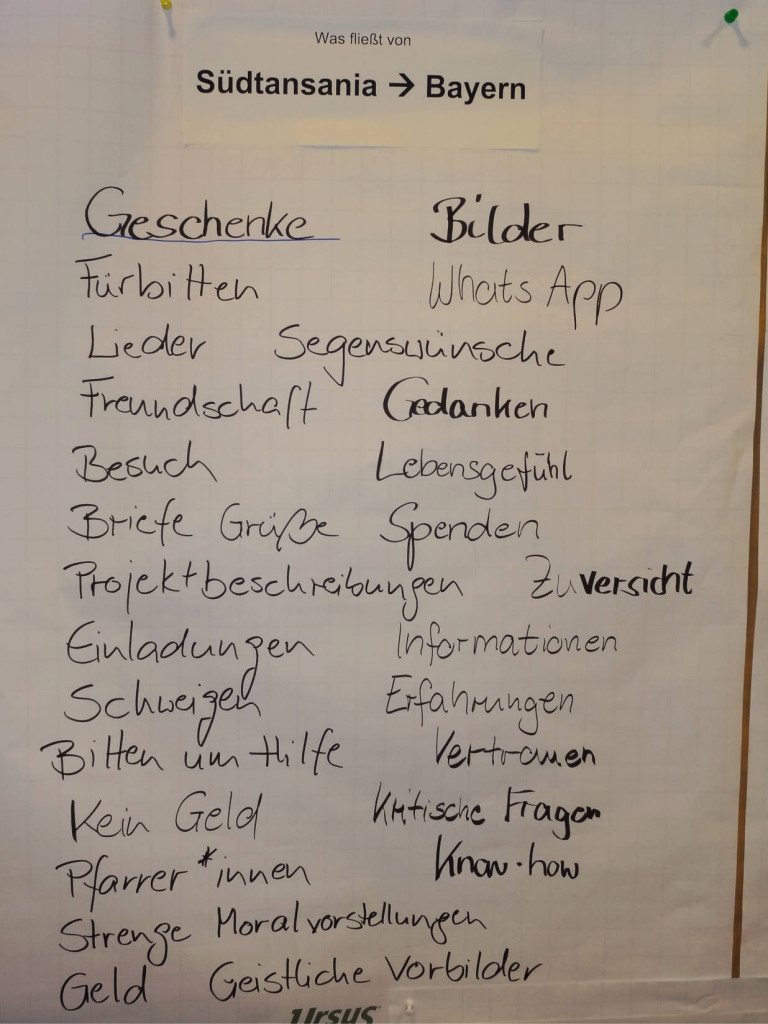 Was fließt von
Südtansania → Bayern
Geschenke Bilder
Fürbitten Whats App
Lieder Segenswünsche
Freundschaft Gedanken
Besuch Lebensgefühl
Briefe Grüße Spenden
Projektbeschreibungen Zuversicht
Einladungen Informationen
Schweigen Erfahrungen
Bitten um Hilfe Vertrauen
Kein Geld Kritische Fragen
Pfarrer*innen Know-how
Strenge Moralvorstellungen
Geld Geistliche Vorbilder
Ursus